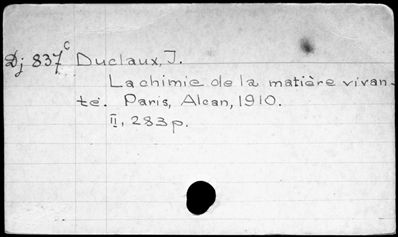 Dj 837c Duclaux, J.
La chimie de la matière vivan-
te. Paris, Alcan, 1910.
II, 283 p.